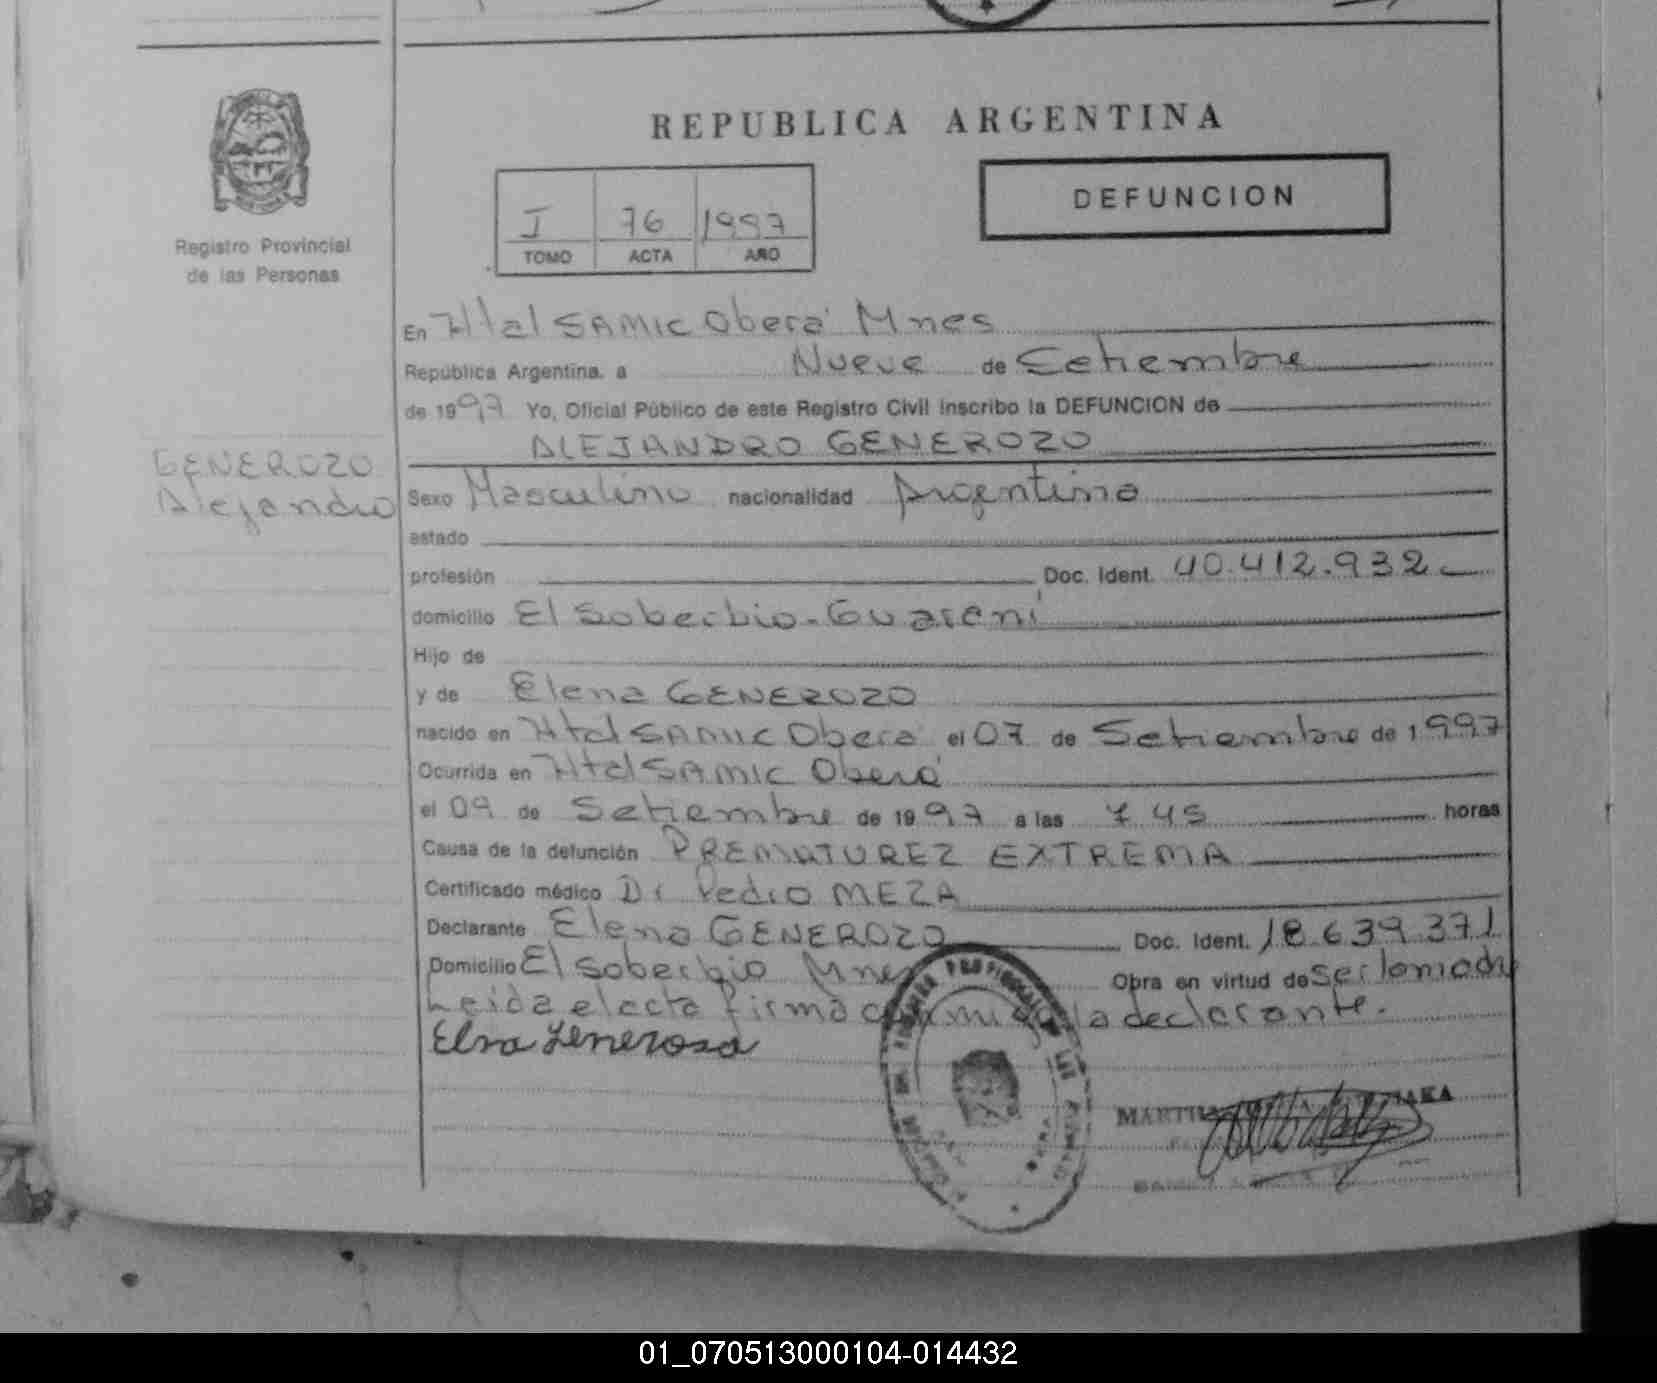 REPUBLICA ARGENTINA
DEFUNCION
I 76 1997
TOMO ACTA AÑO
Registro Provincial
de las Personas
En Htal SAMIC Oberá Mnes
República Argentina, a Nueve de Setiembre
de 1997 Yo, Oficial Público de este Registro Civil inscribo la DEFUNCION de
ALEJANDRO GENEROZO
GENEROZO
Alejandro
Sexo Masculino nacionalidad Argentina
estado
profesión Doc. Ident. 40.412.932
domicilio El Soberbio - Guaraní
Hijo de
y de Elena GENEROZO
nacido en Htal SAMIC Oberá el 07 de Setiembre de 1997
Ocurrida en Htal SAMIC Oberá
el 09 de Setiembre de 1997 a las 7 45 horas
Causa de la defunción PREMATUREZ EXTREMA
Certificado médico Dr Pedro MEZA
Declarante Elena GENEROZO Doc. Ident. 18.639.371
Domicilio El Soberbio Mnes Obra en virtud de ser la madre
Leida el acta firma conmigo la declarante.
Elna Generosa
01_070513000104-014432